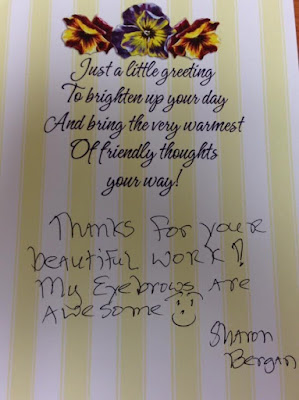 Just a little greeting
To brighten up your day
And bring the very warmest
Of friendly thoughts
your way!
Thanks for youre
beautiful work!
My Eyebrows are
Awesome
Sharon
Bergan